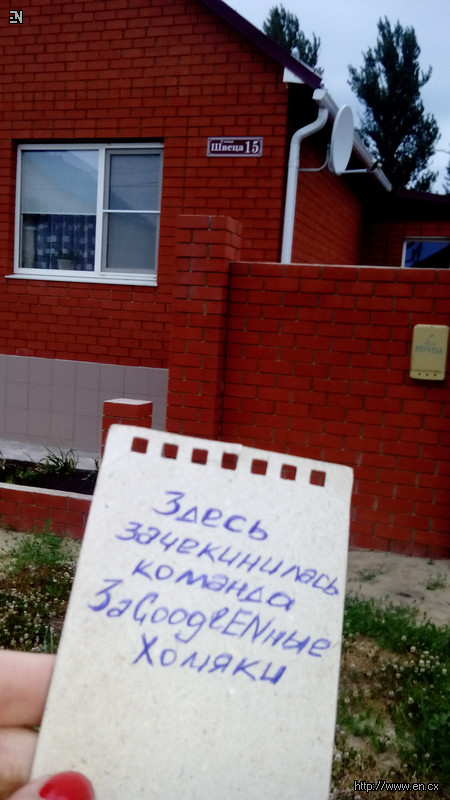 EN
улица
Швеца 15
Здесь
зачекинилась
команда
ЗаGooglENные
Хомяки
http://www.en.cx